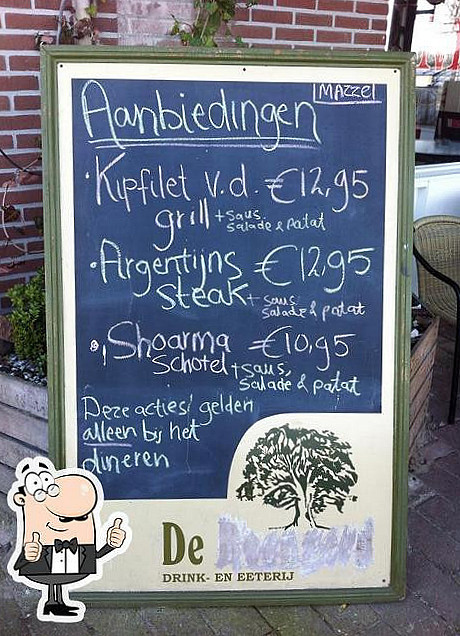 MAZZEL
Aanbiedingen
·Kipfilet v.d. €12,95
grill + saus,
salade & patat
·Argentijns €12,95
steak + saus
salade & patat
·Shoarma €10,95
schotel + saus,
salade & patat
Deze acties gelden
alleen bij het
dineren
De
DRINK- EN EETERIJ